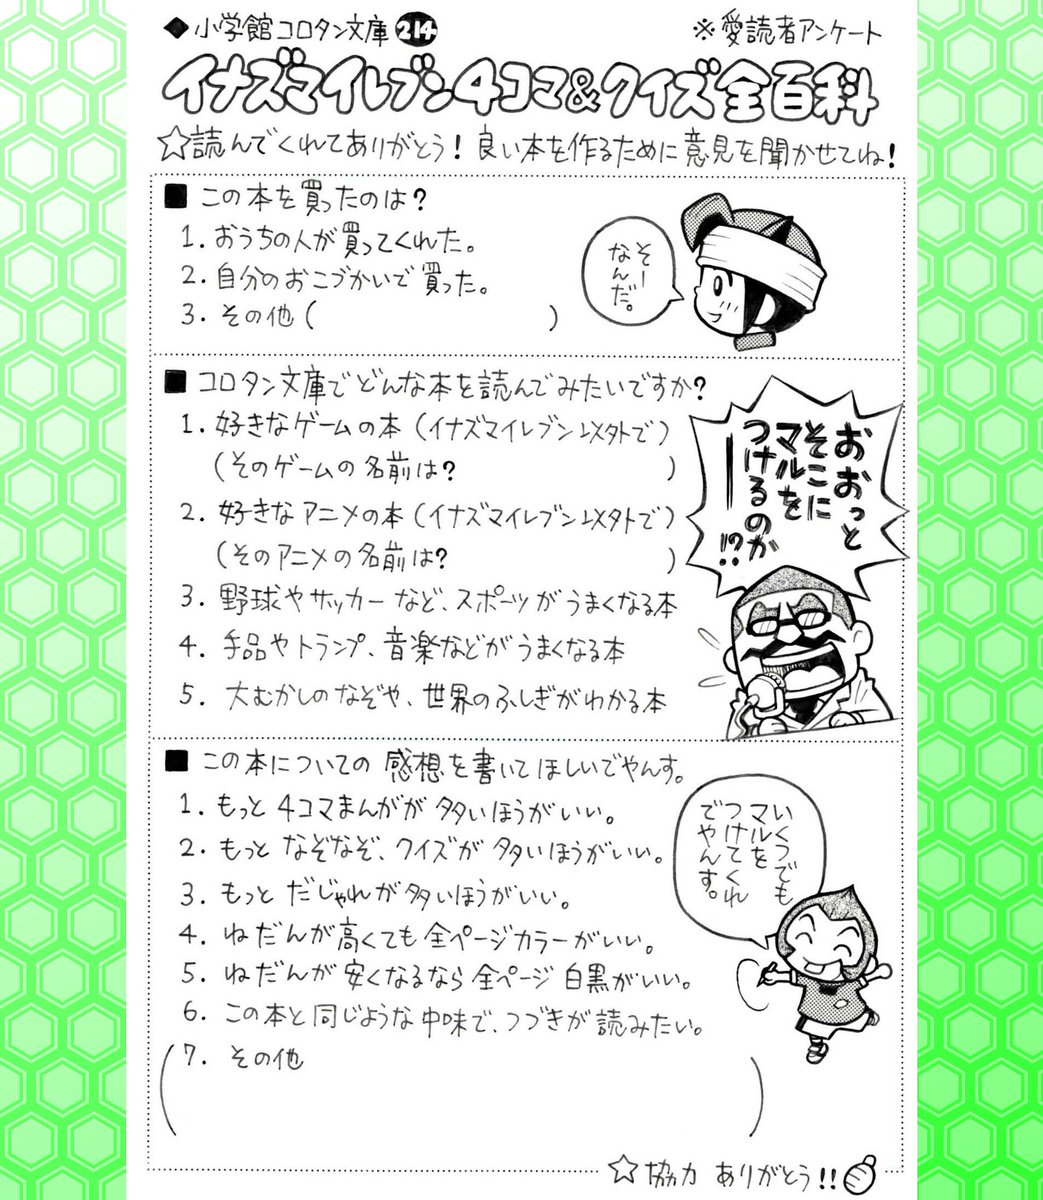 ◆小学館コロタン文庫214
※愛読者アンケート
イナズマイレブン4コマ&クイズ全百科
☆読んでくれてありがとう!良い本を作るために意見を聞かせてね!
■この本を買ったのは?
1.おうちの人が買ってくれた。
2.自分のおこづかいで買った。
3.その他( )
そー
なんだ。
■コロタン文庫でどんな本を読んでみたいですか?
1.好きなゲームの本(イナズマイレブン以外で)
(そのゲームの名前は? )
2.好きなアニメの本(イナズマイレブン以外で)
(そのアニメの名前は? )
3.野球やサッカーなど、スポーツがうまくなる本
4.手品やトランプ、音楽などがうまくなる本
5.大むかしのなぞや、世界のふしぎがわかる本
おおっと
そこに
マルを
つけるのかー!?
■この本についての感想を書いてほしいでやんす。
1.もっと4コマまんがが多いほうがいい。
2.もっとなぞなぞ、クイズが多いほうがいい。
3.もっとだじゃれが多いほうがいい。
4.ねだんが高くても全ページカラーがいい。
5.ねだんが安くなるなら全ページ白黒がいい。
6.この本と同じような中味で、つづきが読みたい。
7.その他
( )
いくつでも
マルを
つけてくれ
でやんす。
☆協力ありがとう!!